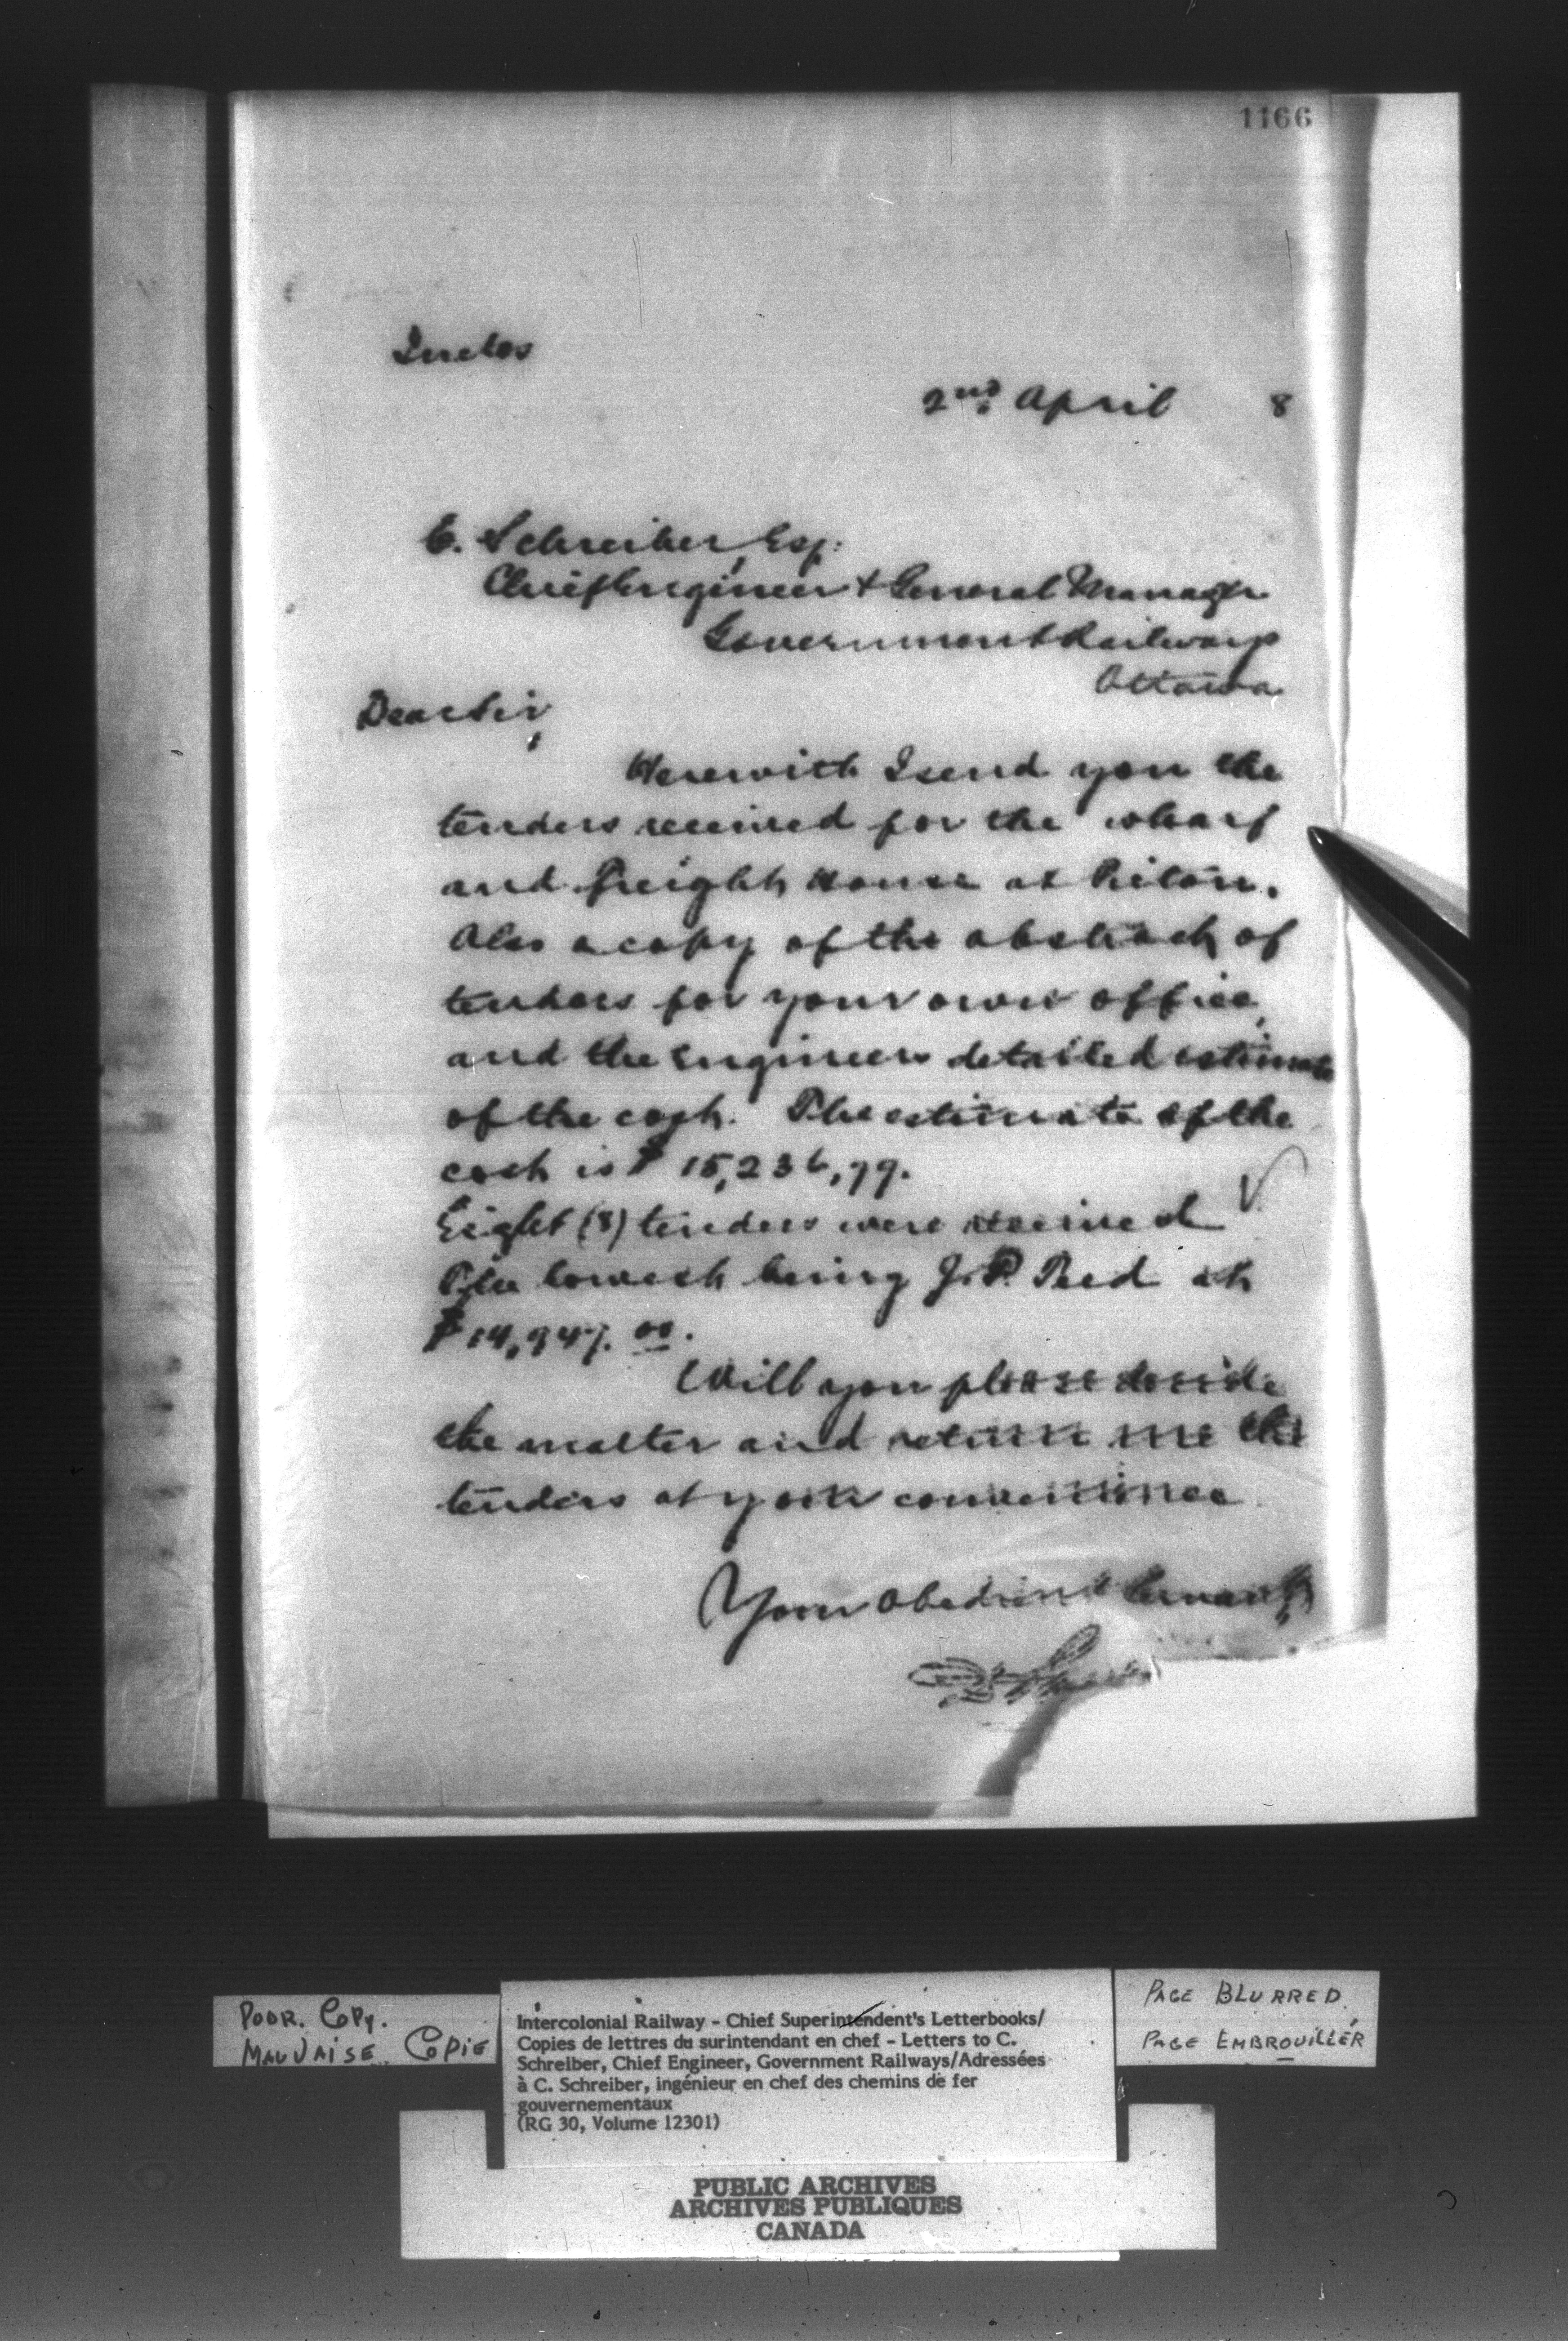 1166
Inclos
2nd April 8
C. Schreiber, Esq.
Chief Engineer & General Manager
Government Railways
Ottawa
Dear Sir,
Herewith I send you the
tenders received for the wharf
and freight House at Pictou.
Also a copy of the abstract of
tenders for your own office,
and the Engineers detailed estimate
of the cost. The estimate of the
cost is $15,236,79.
Eight (8) tenders were received
The lowest being J. P. at
$14,947.00.
Will you please decide
the matter and return me the
tenders at your convenience
Your Obedient Servant
POOR. COPY.
MAUVAISE COPIE
Intercolonial Railway - Chief Superintendent's Letterbooks/
Copies de lettres du surintendant en chef - Letters to C.
Schreiber, Chief Engineer, Government Railways/Adressées
à C. Schreiber, ingénieur en chef des chemins de fer
gouvernementaux
(RG 30, Volume 12301)
PAGE BLURRED
PAGE EMBROUILLÉR
PUBLIC ARCHIVES
ARCHIVES PUBLIQUES
CANADA